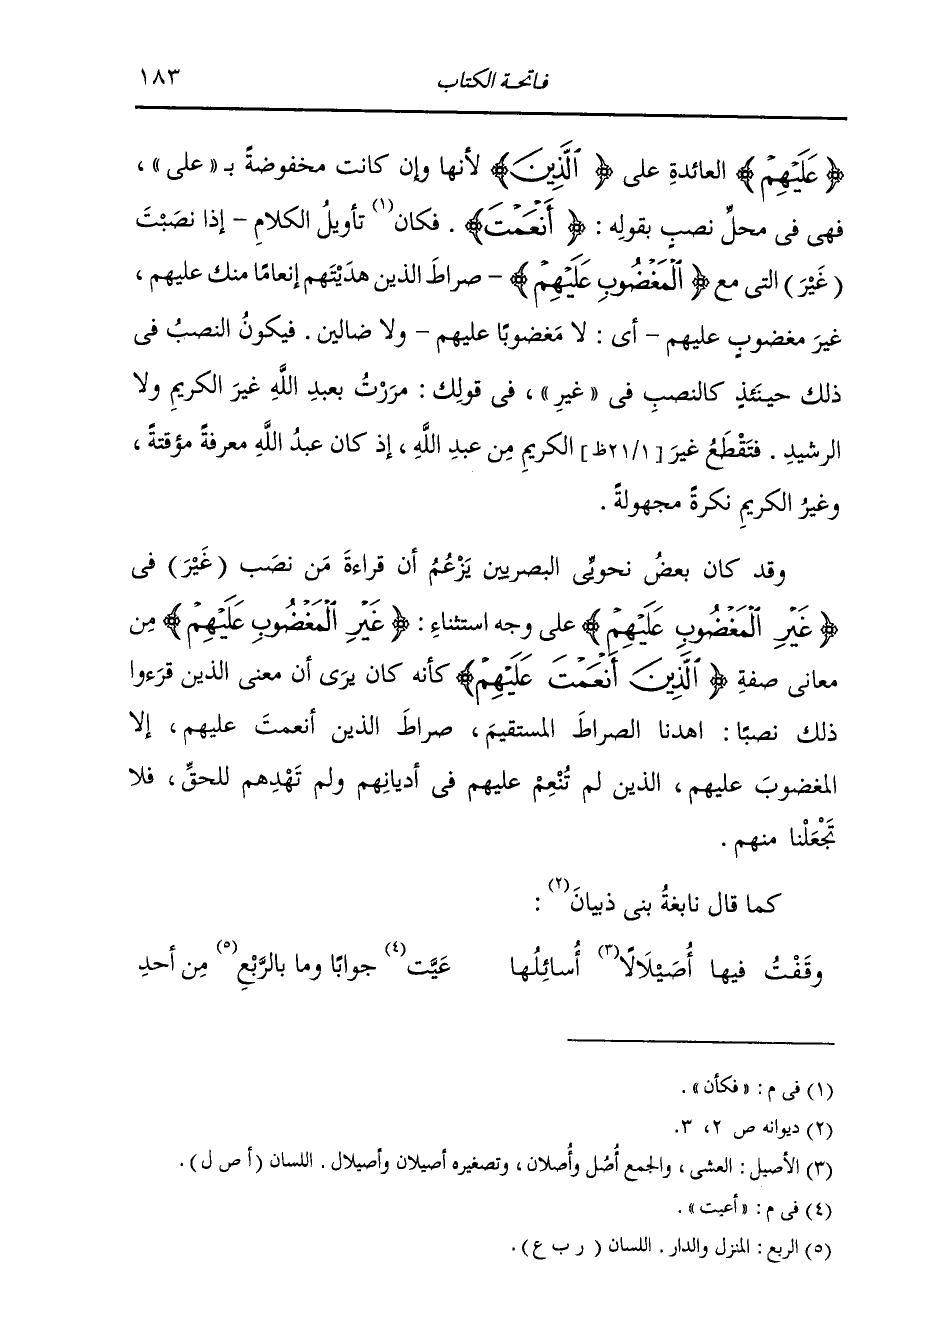 فاتحة الكتاب ١٨٣
﴿ عَلَيْهِمْ ﴾ العائدةِ على ﴿ ٱلَّذِينَ ﴾ لأنها وإن كانت مخفوضةً بـ «على» ،
فهى فى محلِّ نصبٍ بقولِه : ﴿ أَنْعَمْتَ ﴾ . فكان(١) تأويلُ الكلامِ – إذا نصَبْتَ
(غَيْرَ) التى مع ﴿ ٱلْمَغْضُوبِ عَلَيْهِمْ ﴾ – صراطَ الذين هدَيْتَهم إنعامًا منك عليهم ،
غيرَ مغضوبٍ عليهم – أى : لا مَغضوبًا عليهم – ولا ضالين . فيكونُ النصبُ فى
ذلك حينَئذٍ كالنصبِ فى «غيرِ» ، فى قولِك : مرَرْتُ بعبدِ اللَّهِ غيرَ الكريمِ ولا
الرشيدِ . فتَقْطَعُ غيرَ [٢١/١ظ] الكريمِ مِن عبدِ اللَّهِ ، إذ كان عبدُ اللَّهِ معرفةً مؤقتةً ،
وغيرُ الكريمِ نكرةً مجهولةً .
وقد كان بعضُ نحويِّى البصريين يَزْعُمُ أن قراءةَ مَن نصَب (غَيْرَ) فى
﴿ غَيْرِ ٱلْمَغْضُوبِ عَلَيْهِمْ ﴾ على وجه استثناءِ : ﴿ غَيْرِ ٱلْمَغْضُوبِ عَلَيْهِمْ ﴾ مِن
معانى صفةِ ﴿ ٱلَّذِينَ أَنْعَمْتَ عَلَيْهِمْ ﴾ كأنه كان يرَى أن معنى الذين قرَءوا
ذلك نصبًا : اهدنا الصراطَ المستقيمَ ، صراطَ الذين أنعمتَ عليهم ، إلا
المغضوبَ عليهم ، الذين لم تُنْعِمْ عليهم فى أديانِهم ولم تَهْدِهم للحقِّ ، فلا
تَجْعَلْنا منهم .
كما قال نابغةُ بنى ذبيانَ(٢) :
وقَفْتُ فيها أُصَيْلَالًا(٣) أُسائِلُها عَيَّت(٤) جوابًا وما بالرَّبْعِ(٥) مِن أحدِ
(١) فى م : «فكأن» .
(٢) ديوانه ص ٢، ٣.
(٣) الأصيل : العشى ، والجمع أُصُل وأُصلان ، وتصغيره أصيلان وأصيلال . اللسان (أ ص ل) .
(٤) فى م : «أعيت» .
(٥) الربع : المنزل والدار . اللسان ( ر ب ع ) .